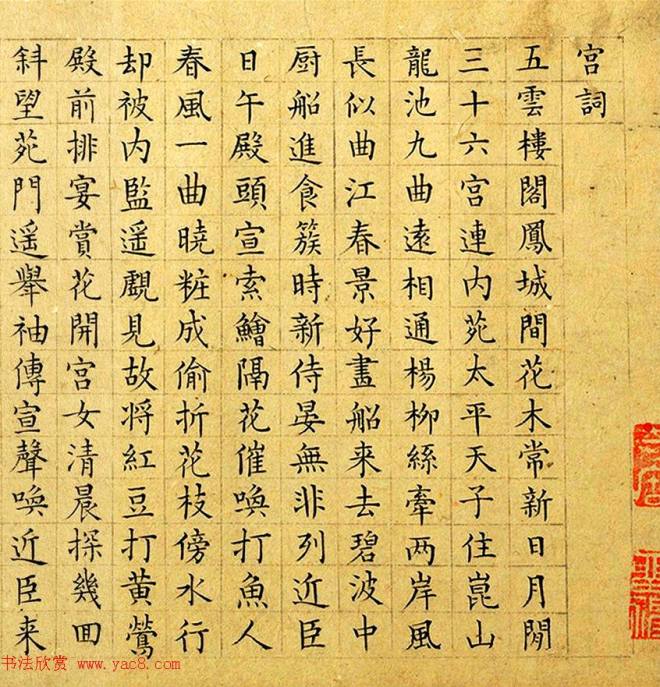 宮詞
五雲樓閣鳳城間花木常新日月閒
三十六宮連内苑太平天子住崑山
龍池九曲遠相通楊栁絲牽两岸風
長似曲江春景好畫船来去碧波中
厨船進食簇時新侍晏無非列近臣
日午殿頭宣索鱠隔花催喚打魚人
春風一曲曉粧成偷折花枝傍水行
却被内監遥覷見故将紅豆打黄鶯
殿前排宴賞花開宮女清晨探幾囬
斜望苑門遥舉袖傳宣聲喚近臣来
书法欣赏 www.yac8.com